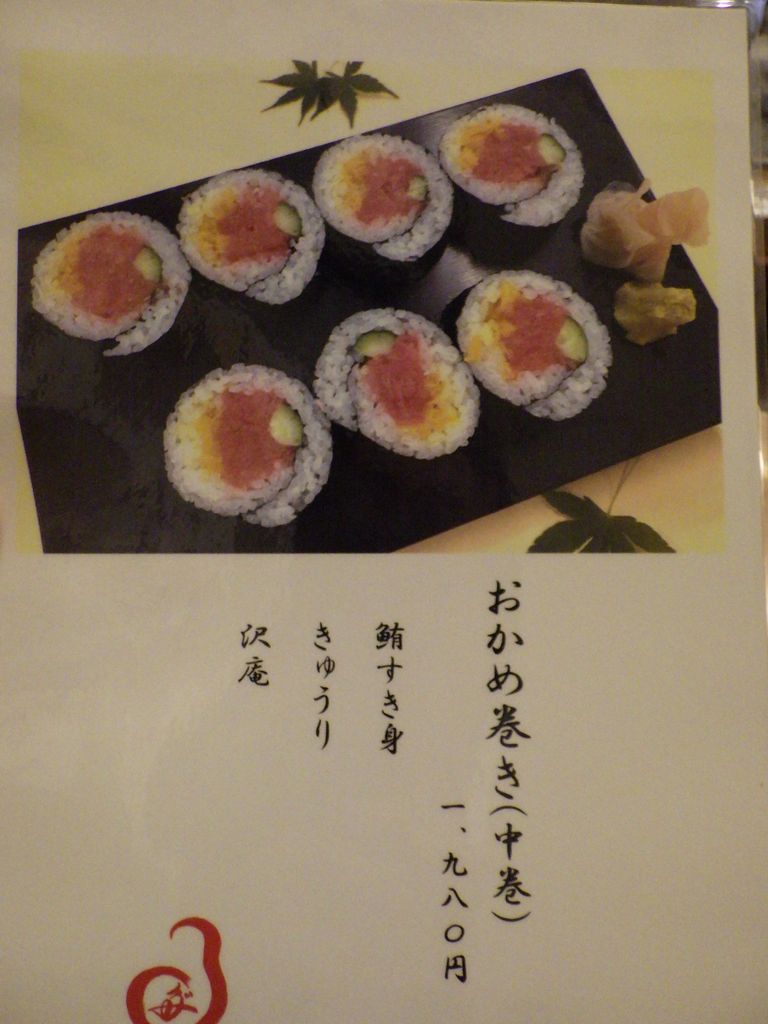 おかめ巻き(中巻)
一、九八〇円
鮪すき身
きゅうり
沢庵